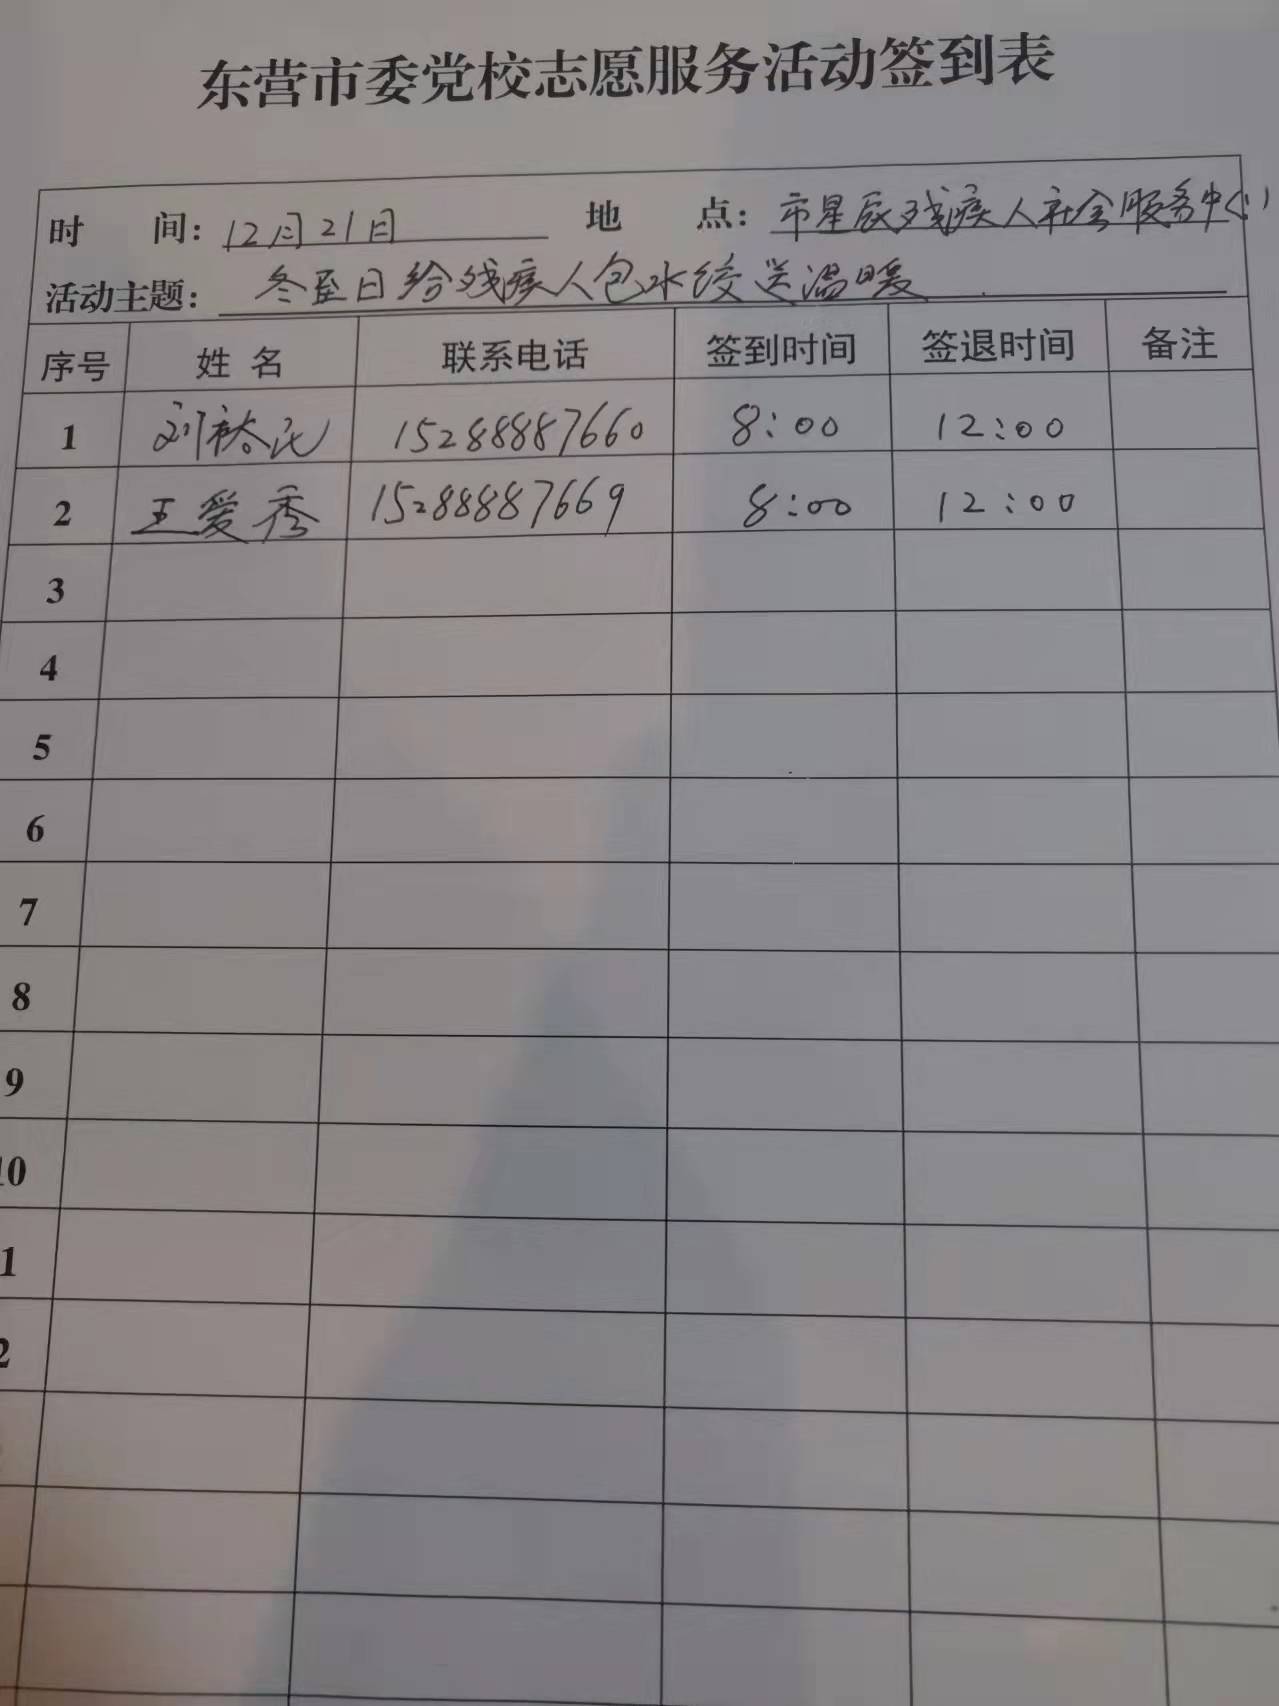 东营市委党校志愿服务活动签到表
时 间: 12月21日 地 点: 市星辰残疾人社会服务中心
活动主题: 冬至日给残疾人包水饺送温暖
序号 姓 名 联系电话 签到时间 签退时间 备注
1 刘裕民 15288887660 8:00 12:00
2 王爱秀 15288887669 8:00 12:00
3
4
5
6
7
8
9
10
1
2